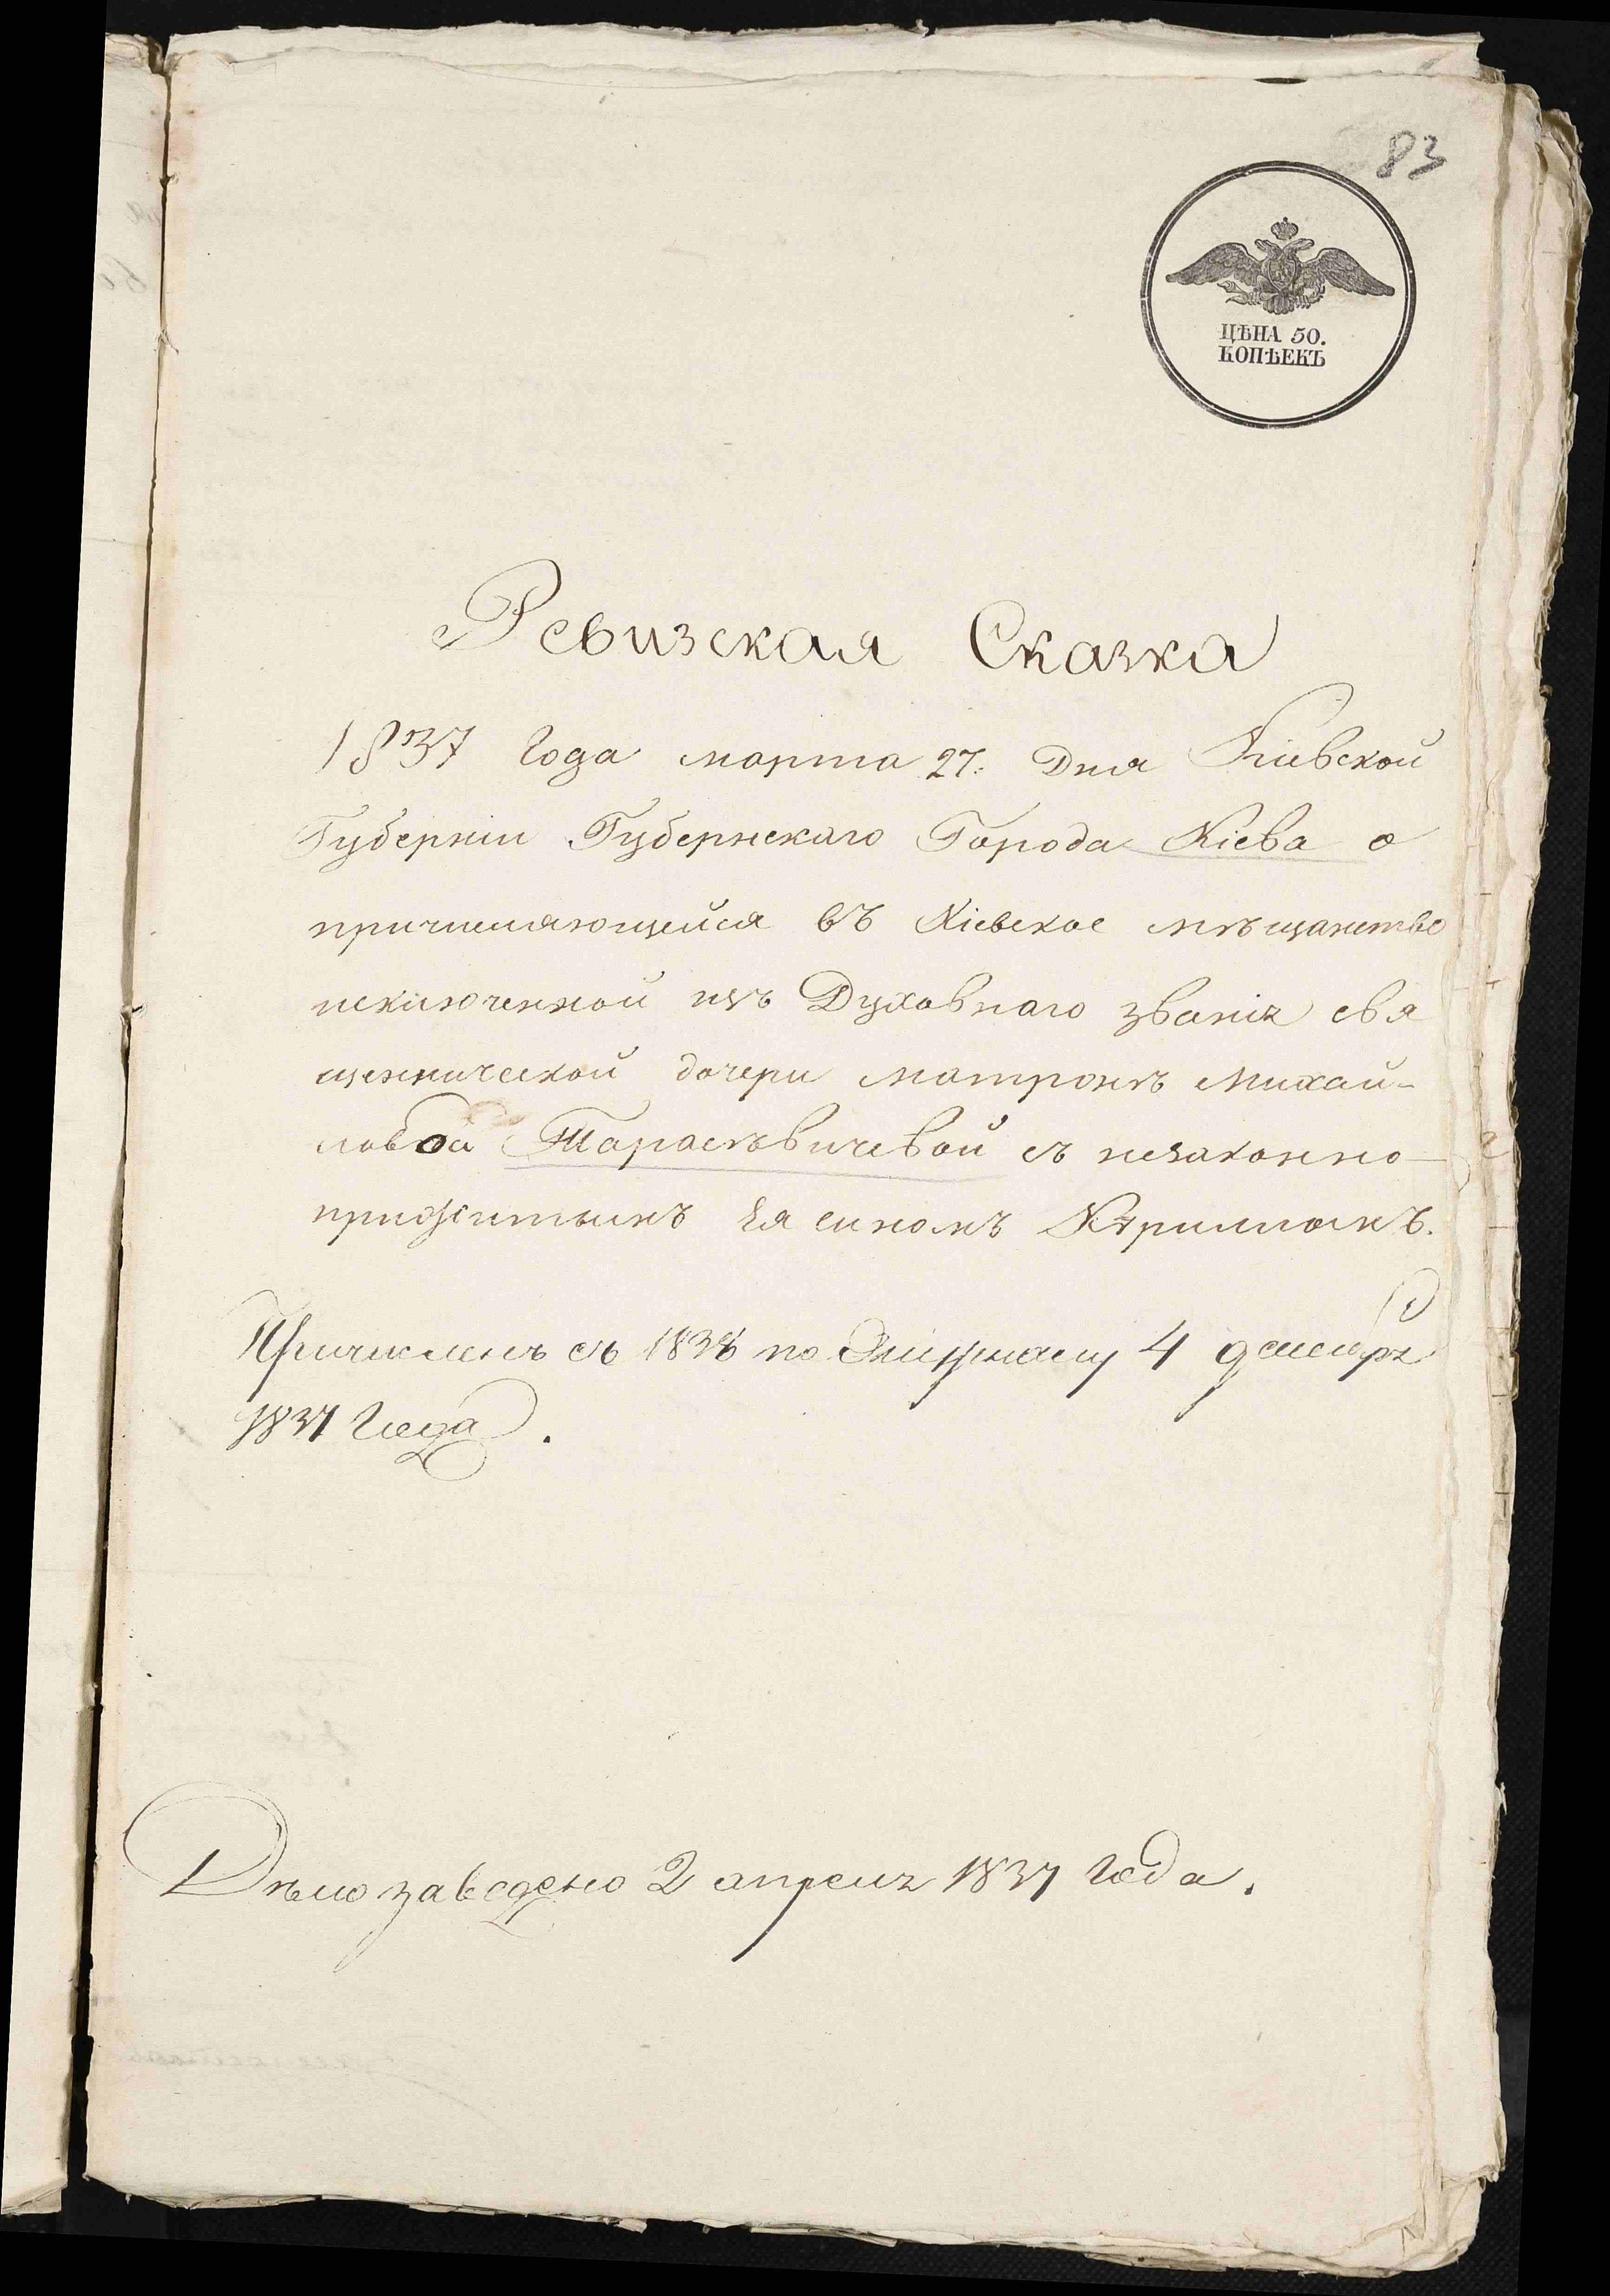 83
ЦѢНА 50.
КОПѢЕКЪ
Ревизская Сказка
1837 Года марта 27. Дня Кіевской
Губерніи Губернскаго Города Кіева о
причисляющейся въ Кіевское мѣщанство
исключенной изъ Духовнаго званія свя
щеннической дочери Матронѣ Михай-
ловой Тарасѣвичевой съ незаконно-
прижитымъ ея сыномъ Кирилломъ.
Причисленъ съ 1838 по 4 декабря
1837 Года.
Дѣло заведено 2 апреля 1837 года.